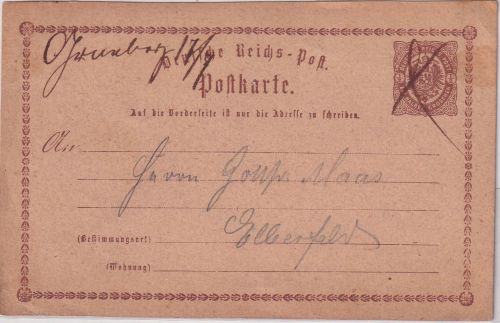 Ohrneberg 17/9
Deutsche Reichs-Post.
Postkarte.
Auf die Vorderseite ist nur die Adresse zu schreiben.
An
Herrn Gottfr. Maas
Elberfeld
(Bestimmungsort)
(Wohnung)